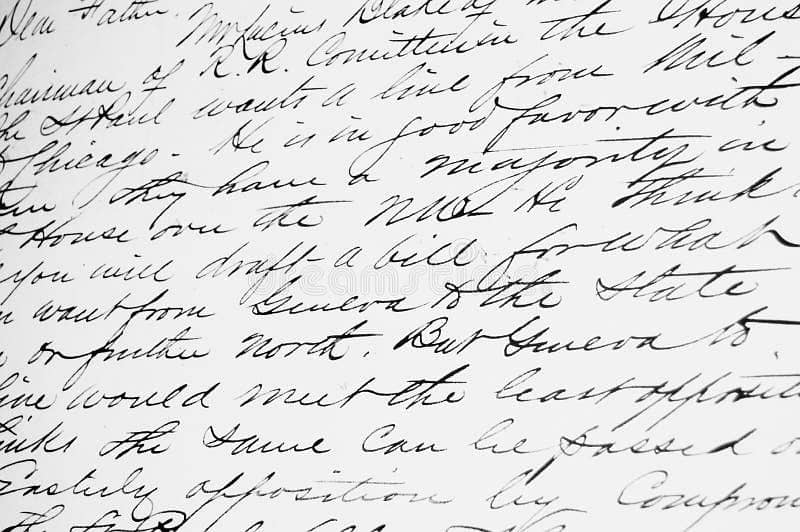 Dear Father. Mr Lucius Blake of
Chairman of R.R. Comitteein the House
the St Paul wants a line from Mil-
Chicago. He is in good favor with
They have a majority in
House over the He think
you will draft a bill for what
want from Geneva to the State
or further north. But Geneva to
line would meet the least oppositi
inks the same can be passed o
Easterly opposition by Comprom
the St P